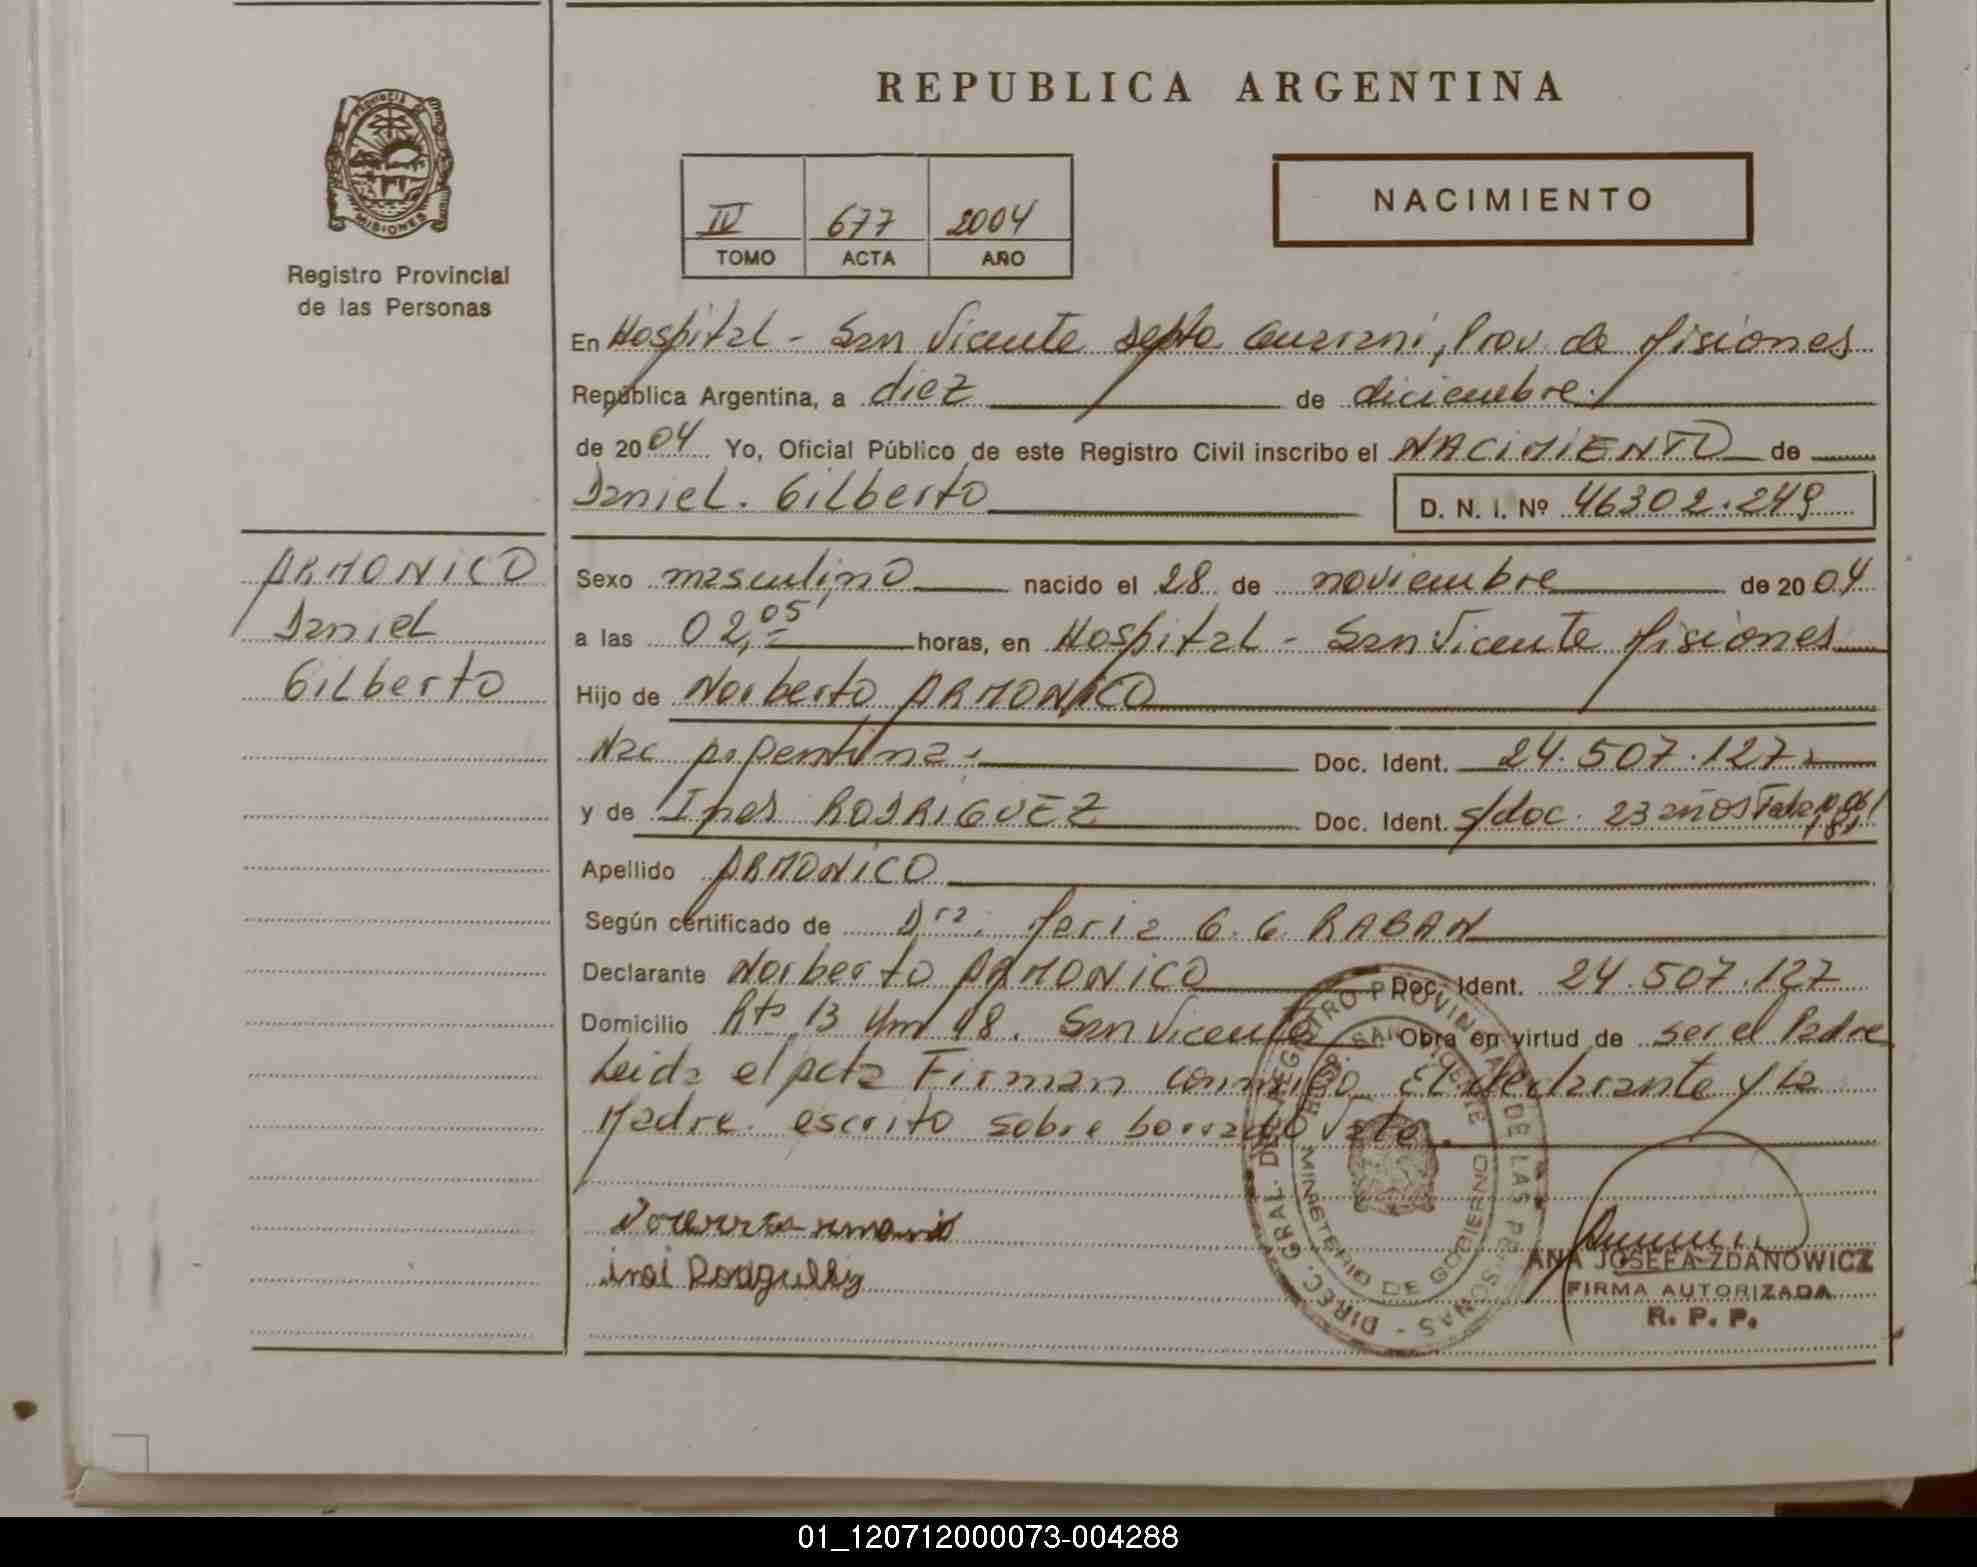 REPUBLICA ARGENTINA
PROVINCIA DE MISIONES
Registro Provincial
de las Personas
IV 677 2004
TOMO ACTA AÑO
NACIMIENTO
En Hospital - San Vicente Depto Guarani, Prov. de Misiones
República Argentina, a diez de diciembre.
de 2004 Yo, Oficial Público de este Registro Civil inscribo el NACIMIENTO de
Daniel. Gilberto
D. N. I. Nº 46302.249
ARMONICO
Daniel
Gilberto
Sexo masculino nacido el 28 de noviembre de 2004
a las 02,05 horas, en Hospital - San Vicente Misiones
Hijo de Norberto ARMONICO
Nac Argentina. Doc. Ident. 24.507.127
y de Ines RODRIGUEZ Doc. Ident. s/doc. 23 años
Apellido ARMONICO
Según certificado de Dra. Maria G. G. RABAN
Declarante Norberto ARMONICO Doc. Ident. 24.507.127
Domicilio Rta 13 Km 48. San Vicente Obra en virtud de ser el Padre
Leida el acta Firman conmigo El declarante y la
Madre. escrito sobre borrado Vale.
DIREC. GRAL. DE REGISTRO PROVINCIAL DE LAS PERSONAS -
HOSP. SAN VICENTE
MINISTERIO DE GOBIERNO
ANA JOSEFA ZDANOWICZ
FIRMA AUTORIZADA
R. P. P.
01_120712000073-004288